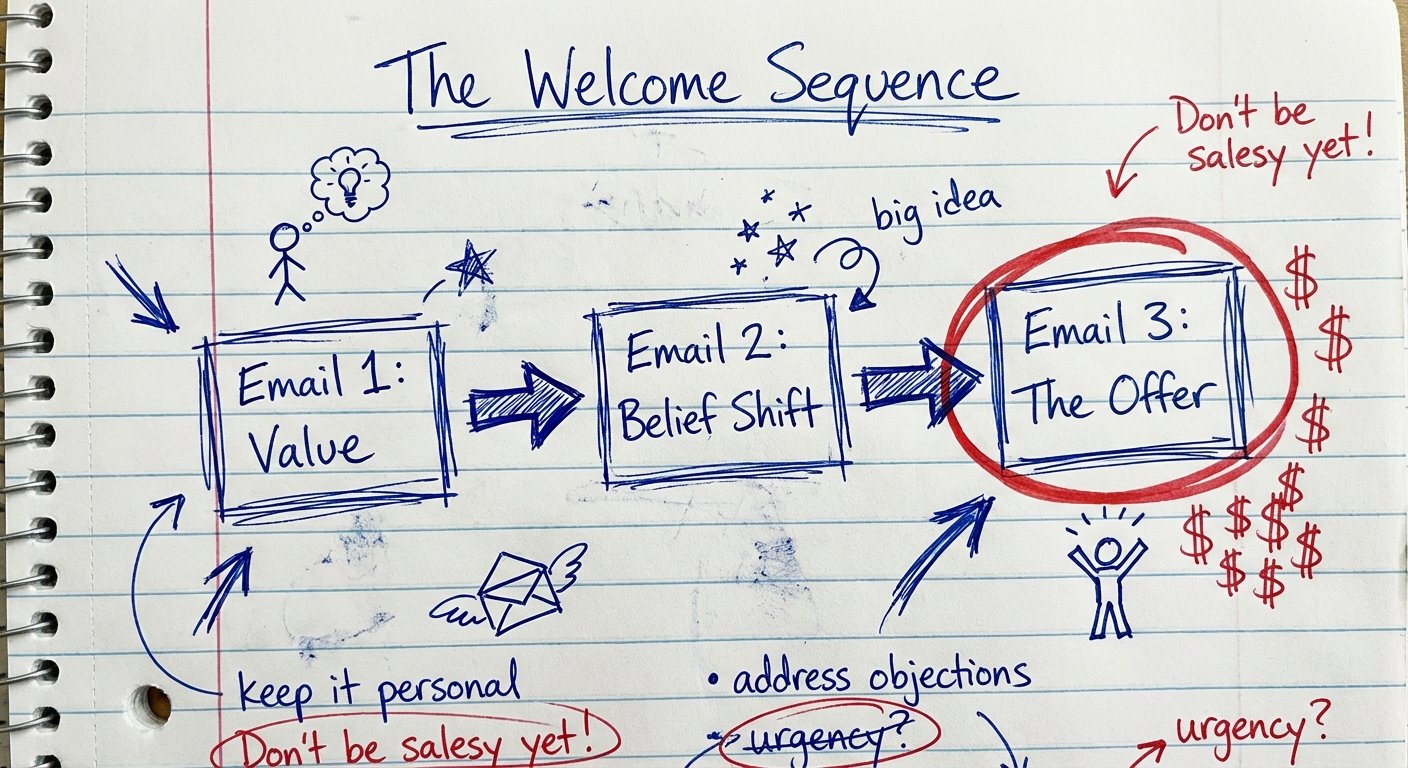 The Welcome Sequence
Don't be
salesy yet!
big idea
Email 1:
Value
Email 2:
Belief Shift
Email 3:
The Offer
$
$
$
$
$ $ $ $
$ $
keep it personal
Don't be salesy yet!
• address objections
• urgency?
urgency?